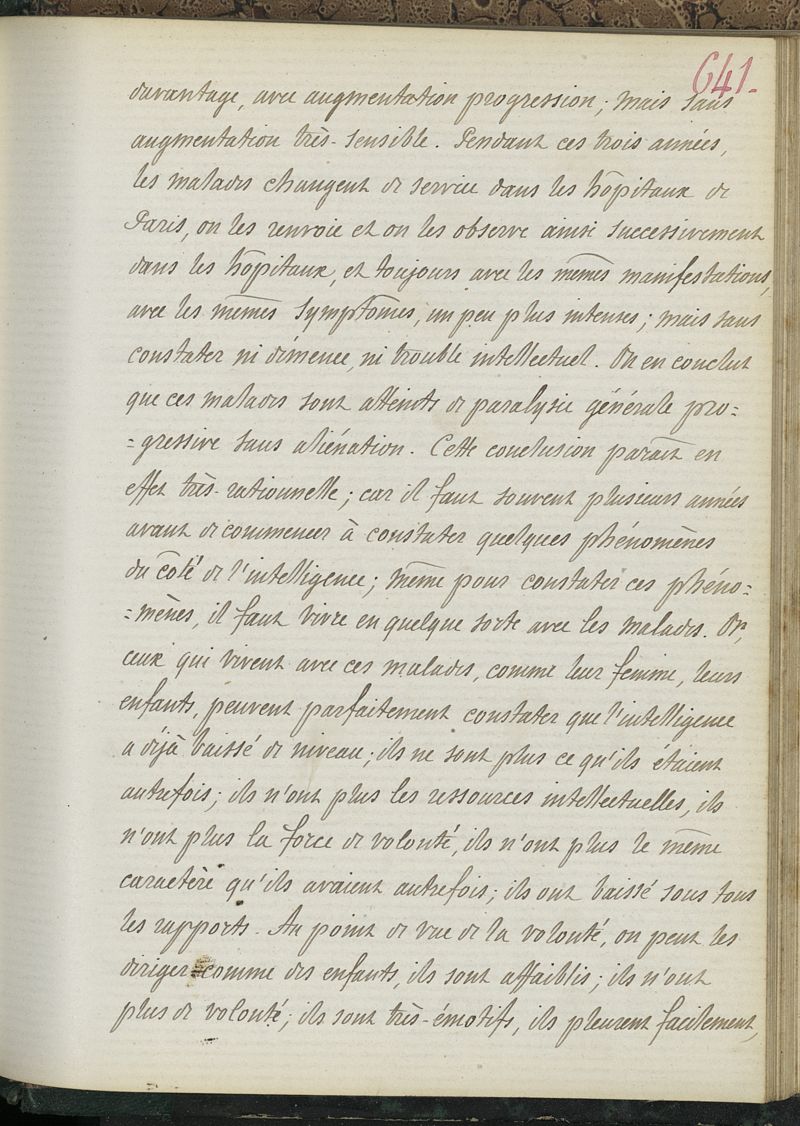 641.
davantage, avec augmentation progression; mais sans
augmentation très-sensible. Pendant ces trois années,
les malades changent de service dans les hôpitaux de
Paris, on les renvoie et on les observe ainsi successivement
dans les hôpitaux, et toujours avec les mêmes manifestations,
avec les mêmes symptômes, un peu plus intenses; mais sans
constater ni démence, ni trouble intellectuel. On en conclut
que ces malades sont atteints de paralysie générale pro-
=gressive sans aliénation. Cette conclusion paraît en
effet très-rationnelle; car il faut souvent plusieurs années
avant de commencer à constater quelques phénomènes
du côté de l'intelligence; même pour constater ces phéno=
=mènes, il faut vivre en quelque sorte avec les malades. Or,
ceux qui vivent avec ces malades, comme leur femme, leurs
enfants, peuvent parfaitement constater que l'intelligence
a déjà baissé de niveau; ils ne sont plus ce qu'ils étaient
autrefois; ils n'ont plus les ressources intellectuelles, ils
n'ont plus la force de volonté, ils n'ont plus le même
caractère qu'ils avaient autrefois; ils ont baissé sous tous
les rapports. Au point de vue de la volonté, on peut les
diriger comme des enfants, ils sont affaiblis; ils n'ont
plus de volonté; ils sont très-émotifs, ils pleurent facilement,